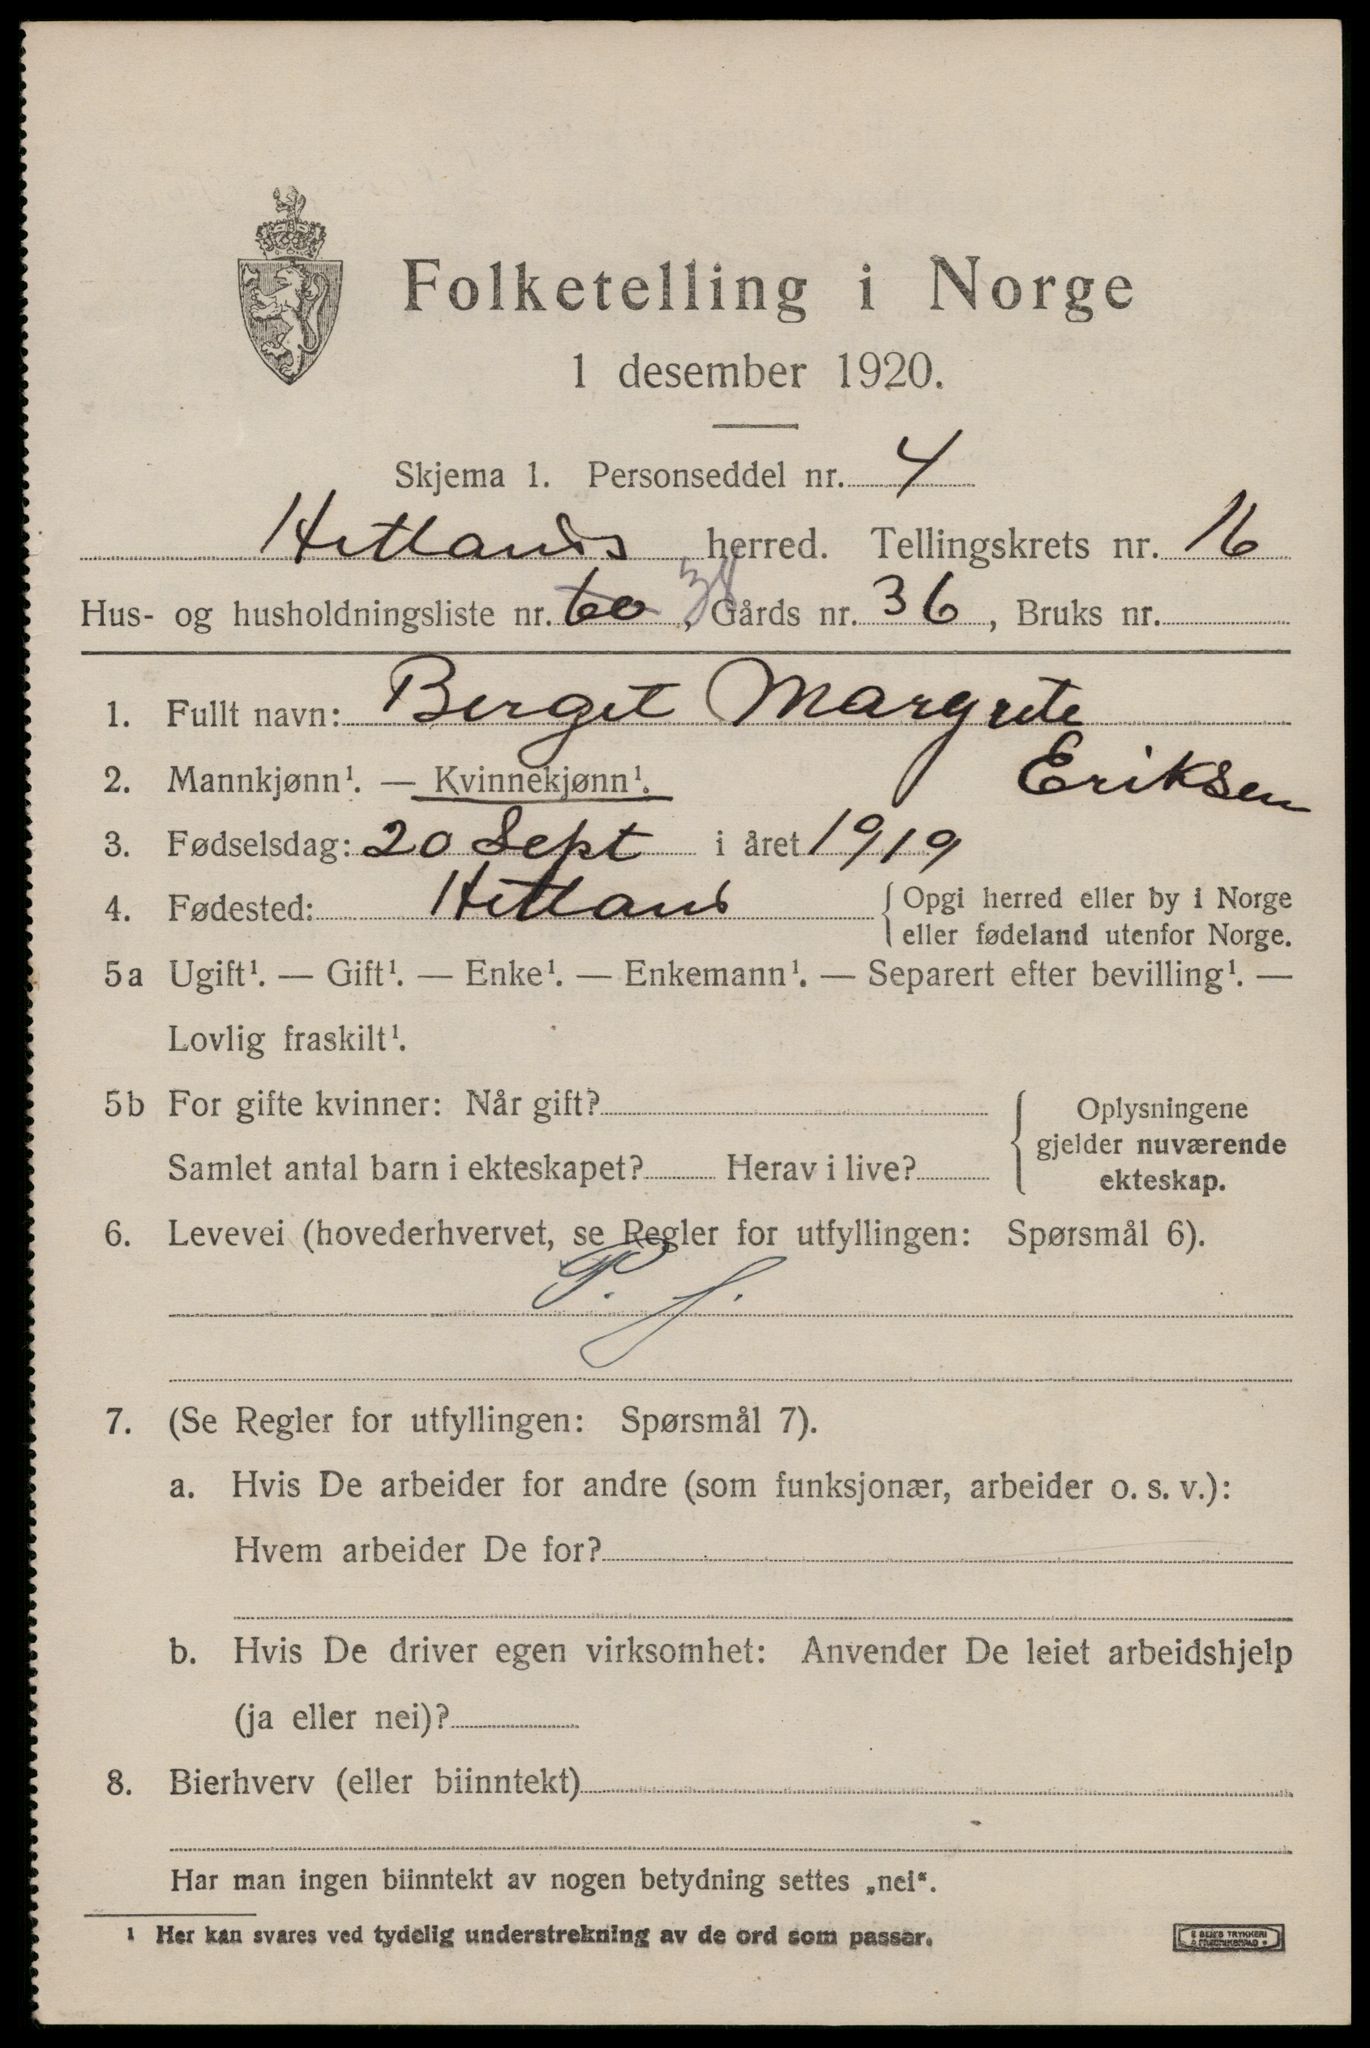 Folketelling i Norge
1 desember 1920.
Skjema 1. Personseddel nr. 4
Hetlands herred. Tellingskrets nr. 16
Hus- og husholdningsliste nr. 60 38, Gårds nr. 36, Bruks nr.
1. Fullt navn: Berget Margrete
Eriksen
2. Mannkjønn¹. — Kvinnekjønn¹.
3. Fødselsdag: 20 Sept i året 1919
4. Fødested: Hetland { Opgi herred eller by i Norge
eller fødeland utenfor Norge.
5a Ugift¹. — Gift¹. — Enke¹. — Enkemann¹. — Separert efter bevilling¹. —
Lovlig fraskilt¹.
5b For gifte kvinner: Når gift?
Samlet antal barn i ekteskapet? Herav i live?
Oplysningene
gjelder nuværende
ekteskap.
6. Levevei (hovederhvervet, se Regler for utfyllingen: Spørsmål 6).
P. f.
7. (Se Regler for utfyllingen: Spørsmål 7).
a. Hvis De arbeider for andre (som funksjonær, arbeider o. s. v.):
Hvem arbeider De for?
b. Hvis De driver egen virksomhet: Anvender De leiet arbeidshjelp
(ja eller nei)?
8. Bierhverv (eller biinntekt)
Har man ingen biinntekt av nogen betydning settes „nei“.
¹ Her kan svares ved tydelig understrekning av de ord som passer.